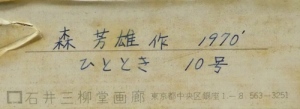 森 芳雄 作 1970'
ひととき 10号
石井三柳堂画廊 東京都中央区銀座1-8 563-3251